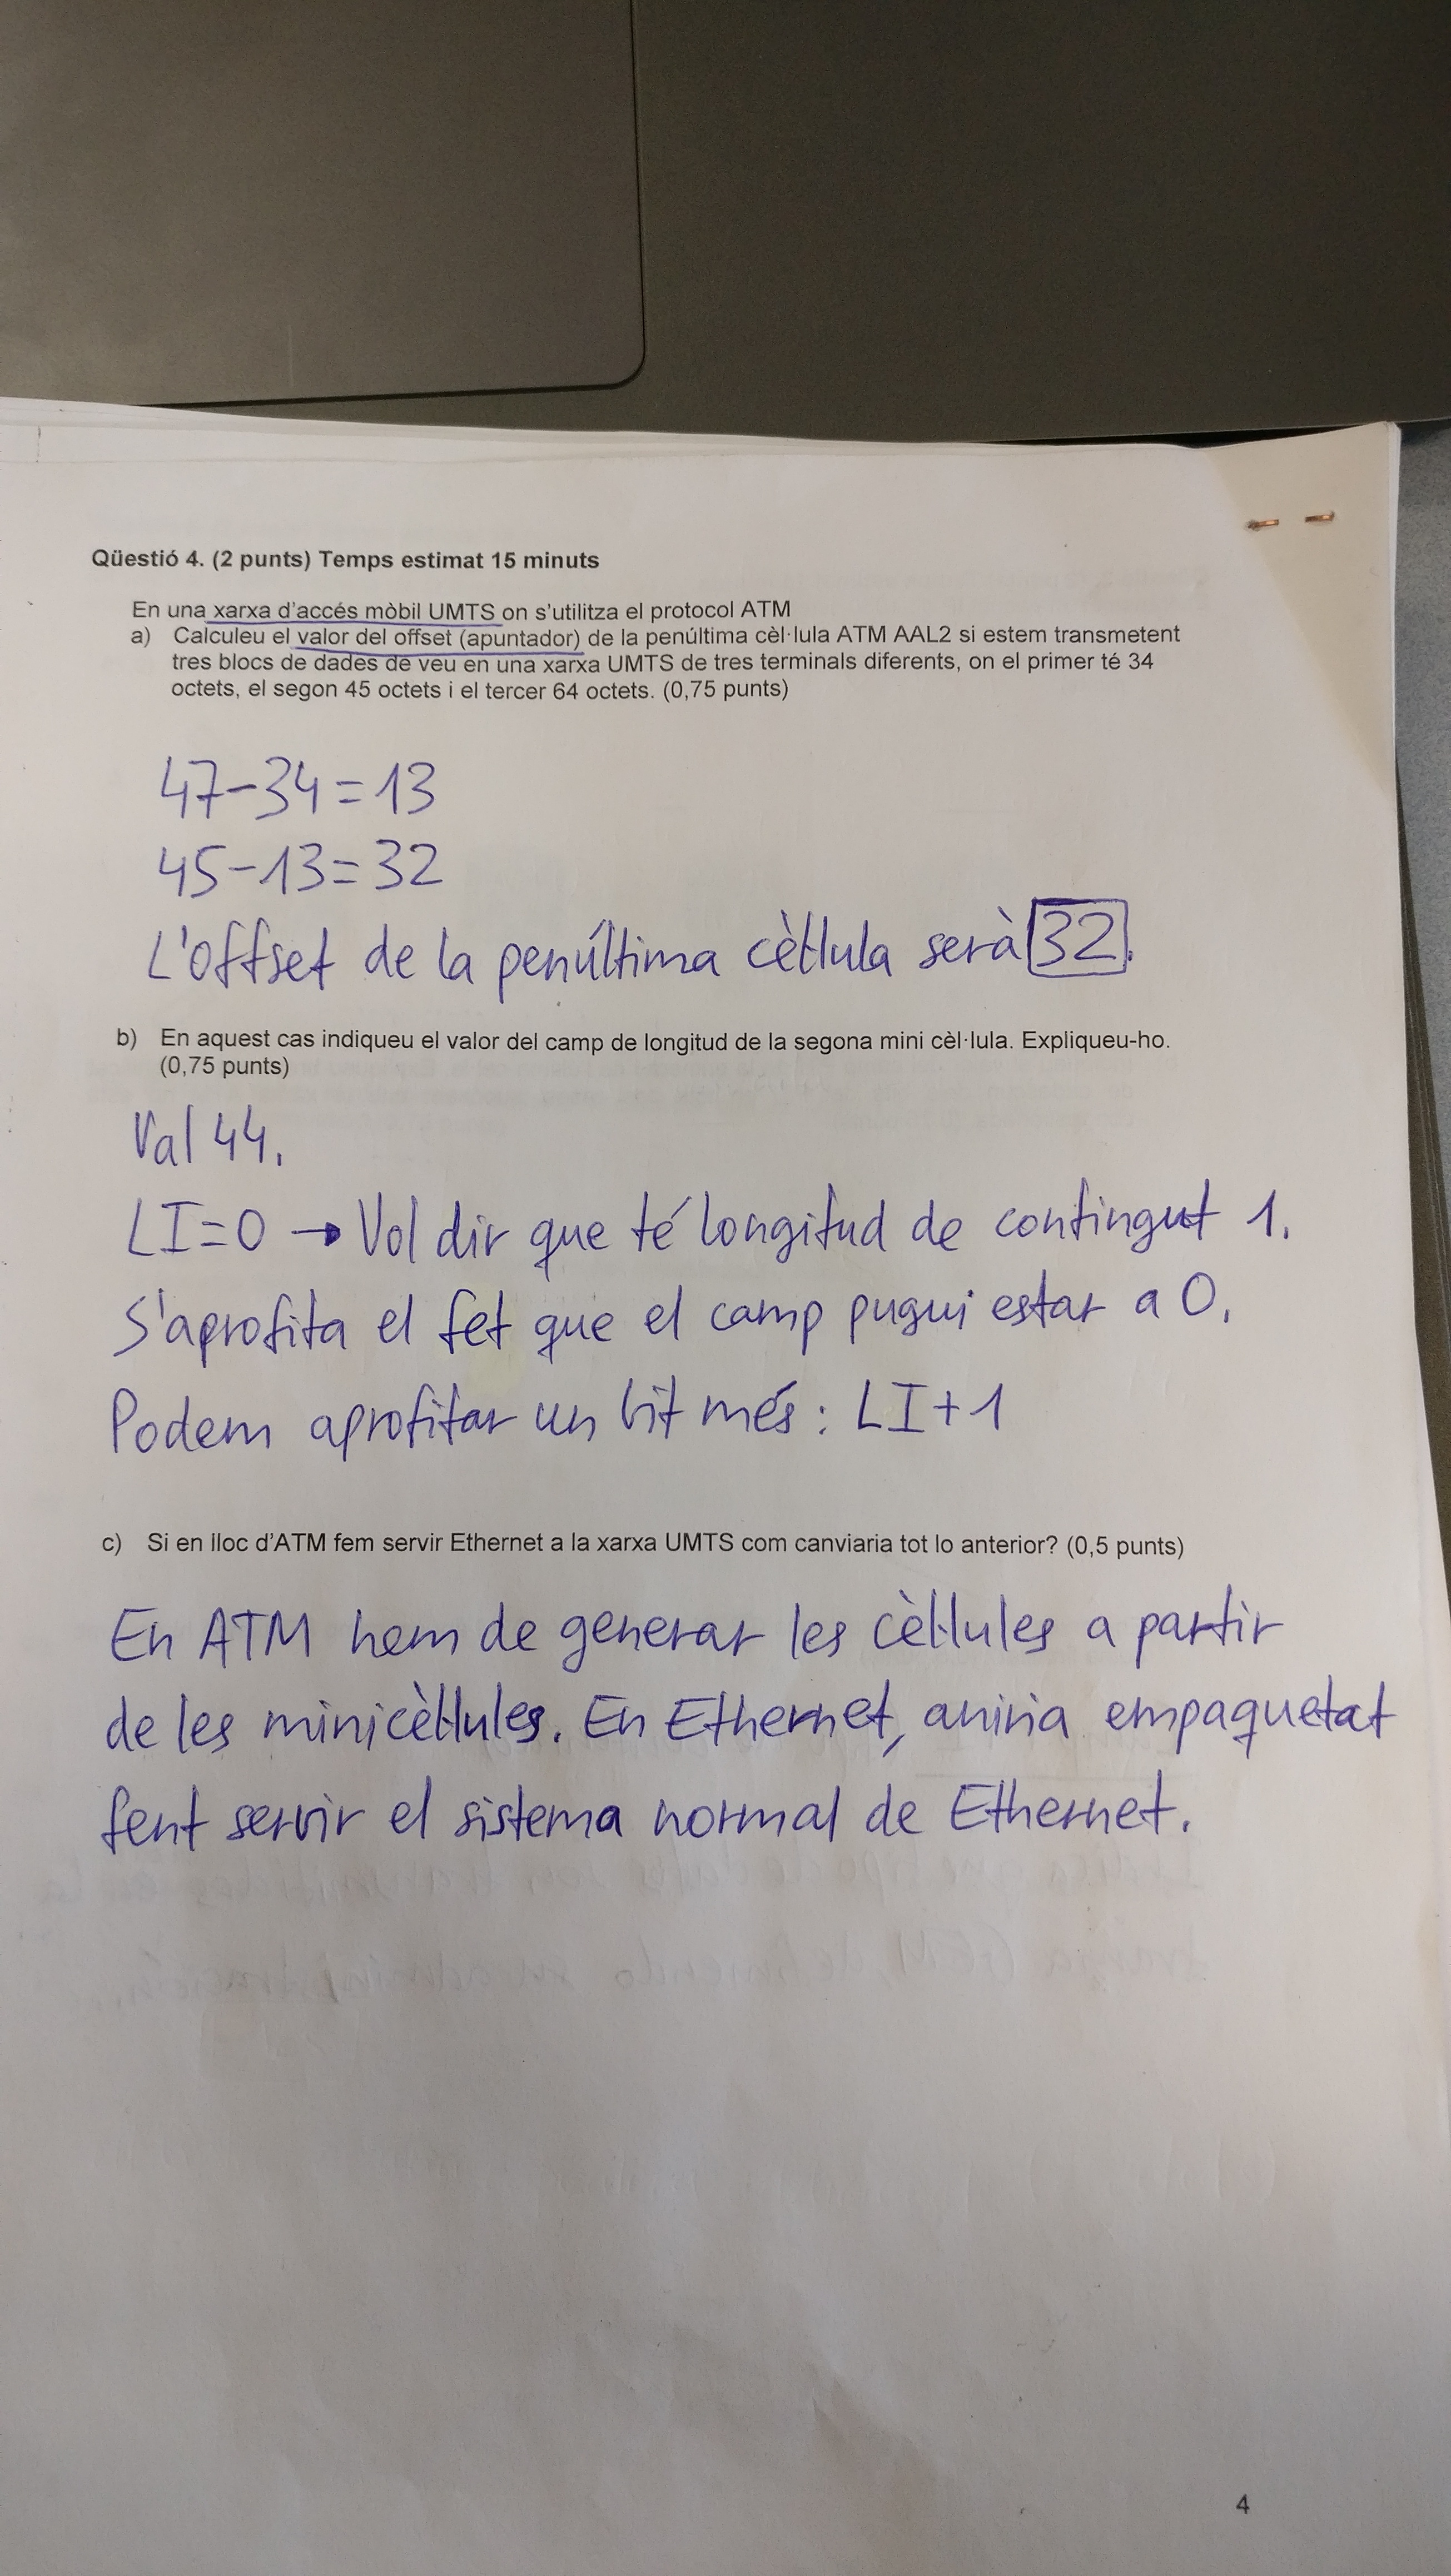 Qüestió 4. (2 punts) Temps estimat 15 minuts
En una xarxa d'accés mòbil UMTS on s'utilitza el protocol ATM
a) Calculeu el valor del offset (apuntador) de la penúltima cèl·lula ATM AAL2 si estem transmetent
tres blocs de dades de veu en una xarxa UMTS de tres terminals diferents, on el primer té 34
octets, el segon 45 octets i el tercer 64 octets. (0,75 punts)
47-34=13
45-13=32
L'offset de la penúltima cèl·lula serà 32.
b) En aquest cas indiqueu el valor del camp de longitud de la segona mini cèl·lula. Expliqueu-ho.
(0,75 punts)
Val 44.
LI=0 → Vol dir que té longitud de contingut 1.
S'aprofita el fet que el camp pugui estar a 0.
Podem aprofitar un bit més: LI+1
c) Si en lloc d'ATM fem servir Ethernet a la xarxa UMTS com canviaria tot lo anterior? (0,5 punts)
En ATM hem de generar les cèl·lules a partir
de les minicèl·lules. En Ethernet, aniria empaquetat
fent servir el sistema normal de Ethernet.
4